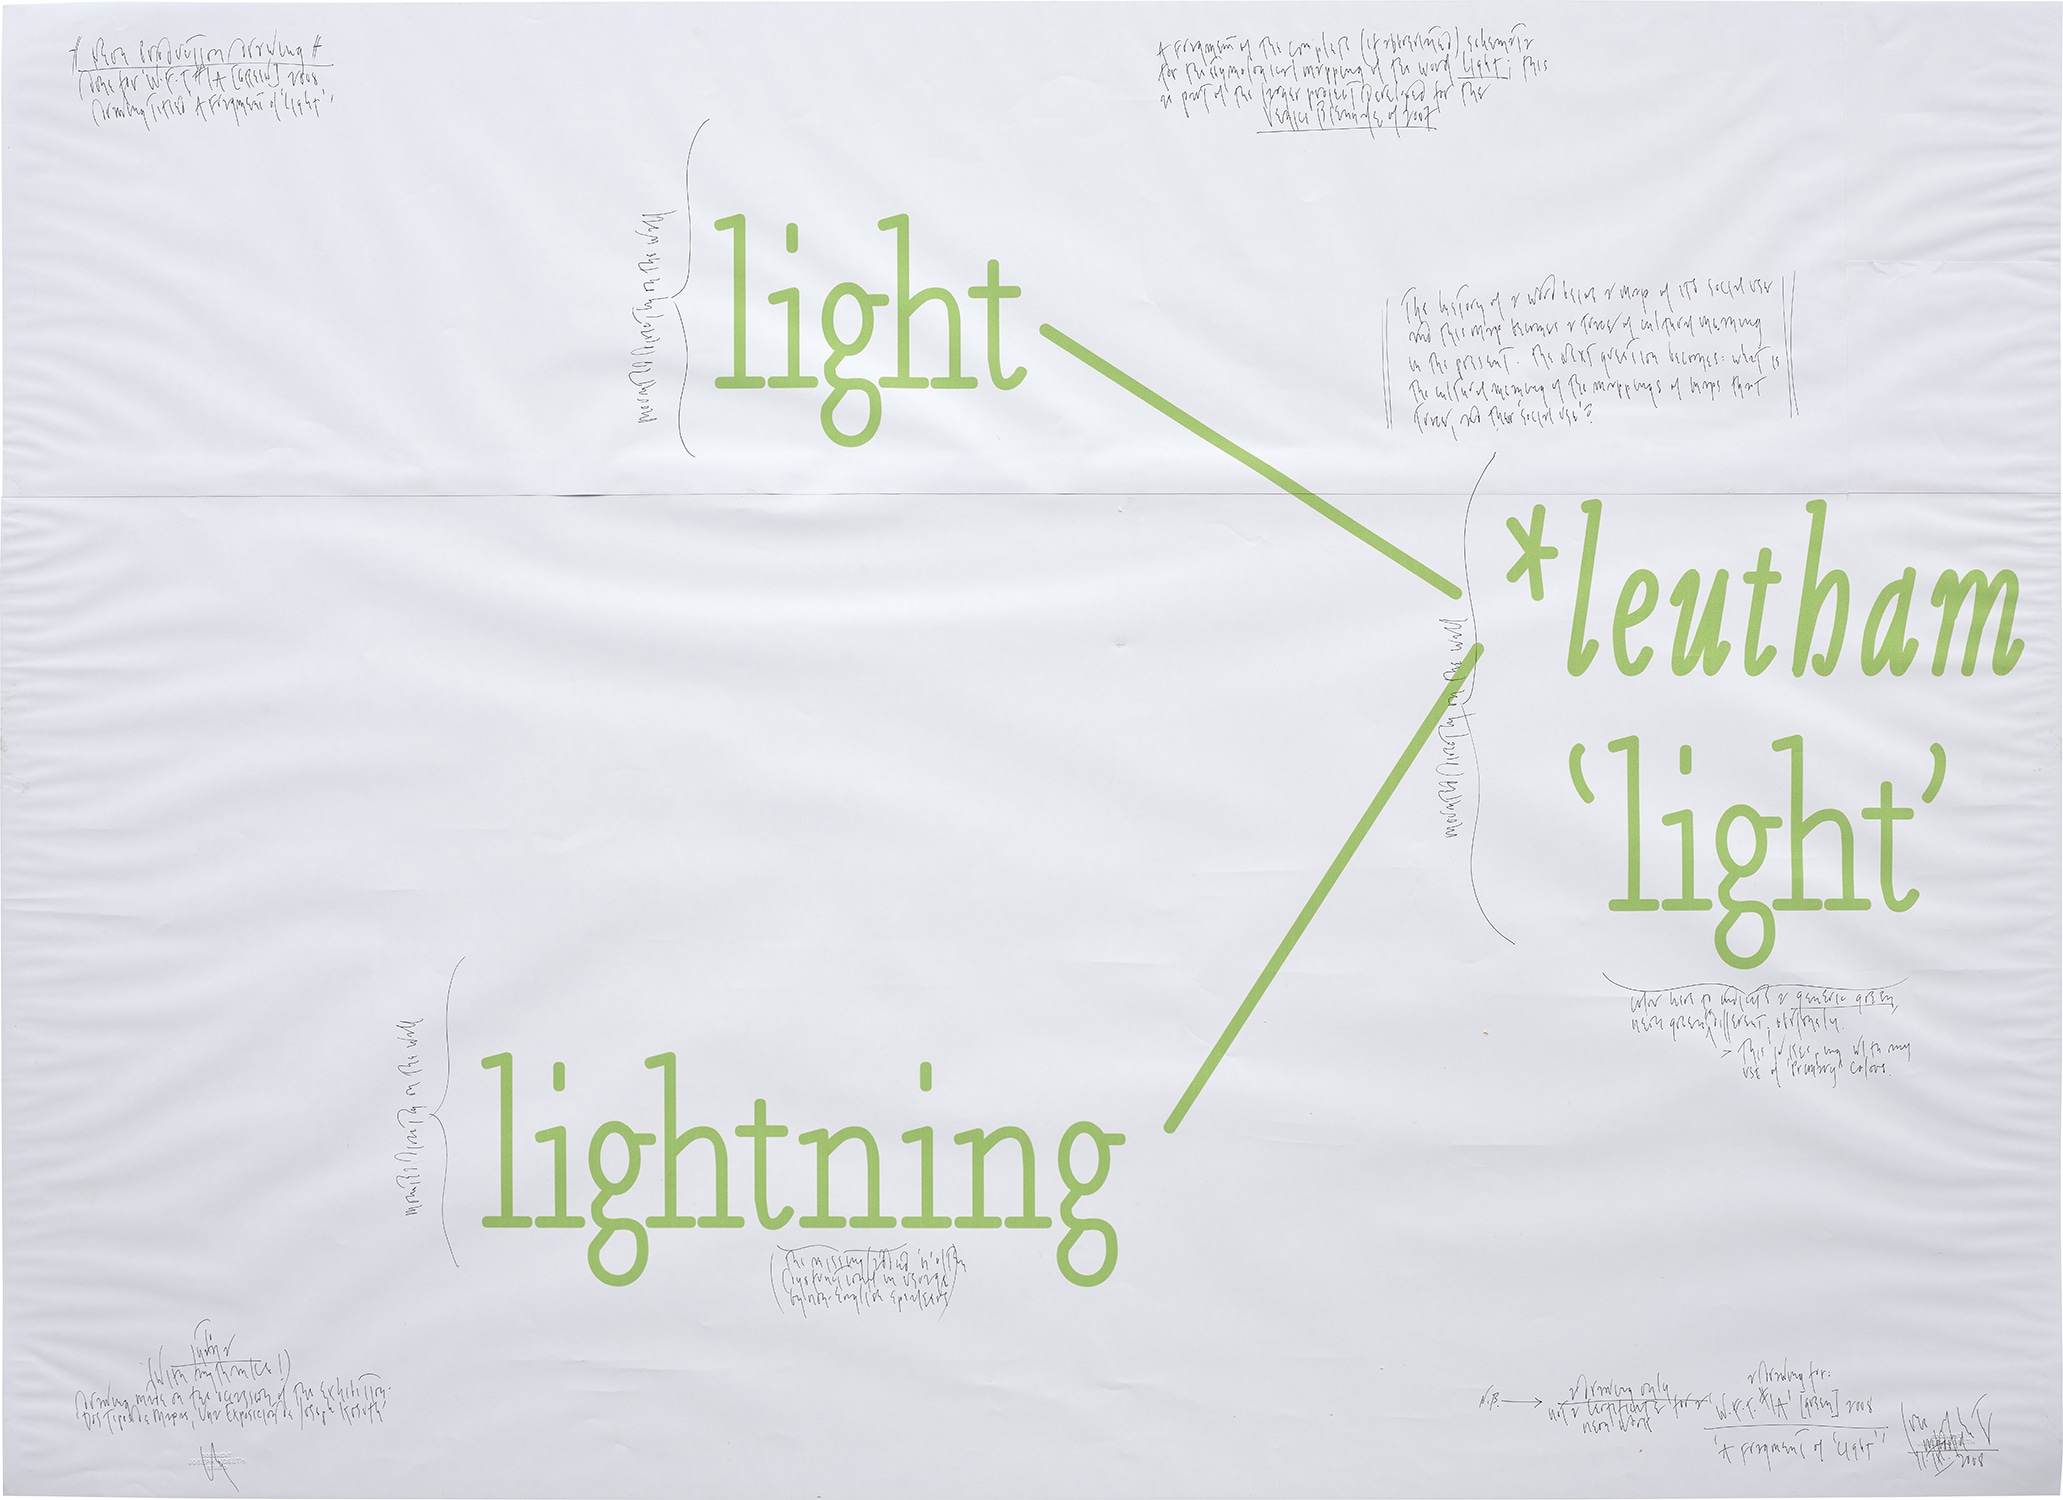 # Neon Production Drawing #
Done for 'W.F.T. #1A' [green] 2008
Drawing titled 'A Fragment of 'Light''
A fragment of the complete (if abbreviated) schematic
for the etymological mapping of the word Light; this
as part of the larger project developed for the
Venice Biennale of 2007
mounted directly on the wall
light
The history of a word being a map of its social use
and this map becomes a trace of cultural meaning
in the present. The next question becomes: what is
the cultural meaning of the mappings of maps that
trace, and their 'social use'?
mounted directly on the wall
*leutham
'light'
color here to indicate a generic green,
neon green different, obviously.
> This is keeping with my
use of 'primary' colors.
mounted directly on the wall
lightning
(The missing second 'n' often
dysfunctional in usage
by non-English speakers)
(with my thanks!)
Drawing made on the occasion of the exhibition:
Dos Tipos de Mapas, Una Exposición de Joseph Kosuth
JOSEPH KOSUTH
N.B. → Drawing only
not a certificate for a
neon work
Drawing for:
'W.F.T. #1A' [green] 2008
'A Fragment of 'Light''
2008